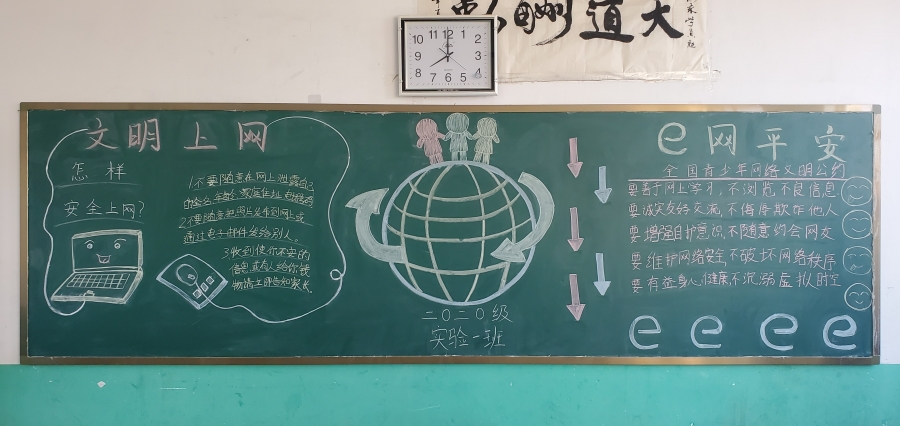 大道酬
12
11 1
10 2
9 3
8 4
7 6 5
文明上网
怎样
安全上网?
1不要随意在网上泄露自己
的姓名、年龄、家庭住址、电话号码
2不要随意把照片发布到网上或
通过电子邮件发给别人。
3收到使你不安的
信息或有人给你赠
物请立即告知家长。
二〇二〇级
实验一班
e网平安
全国青少年网络文明公约
要善于网上学习,不浏览不良信息
要诚实友好交流,不侮辱欺诈他人
要增强自护意识,不随意约会网友
要维护网络安全,不破坏网络秩序
要有益身心健康,不沉溺虚拟时空
e e e e